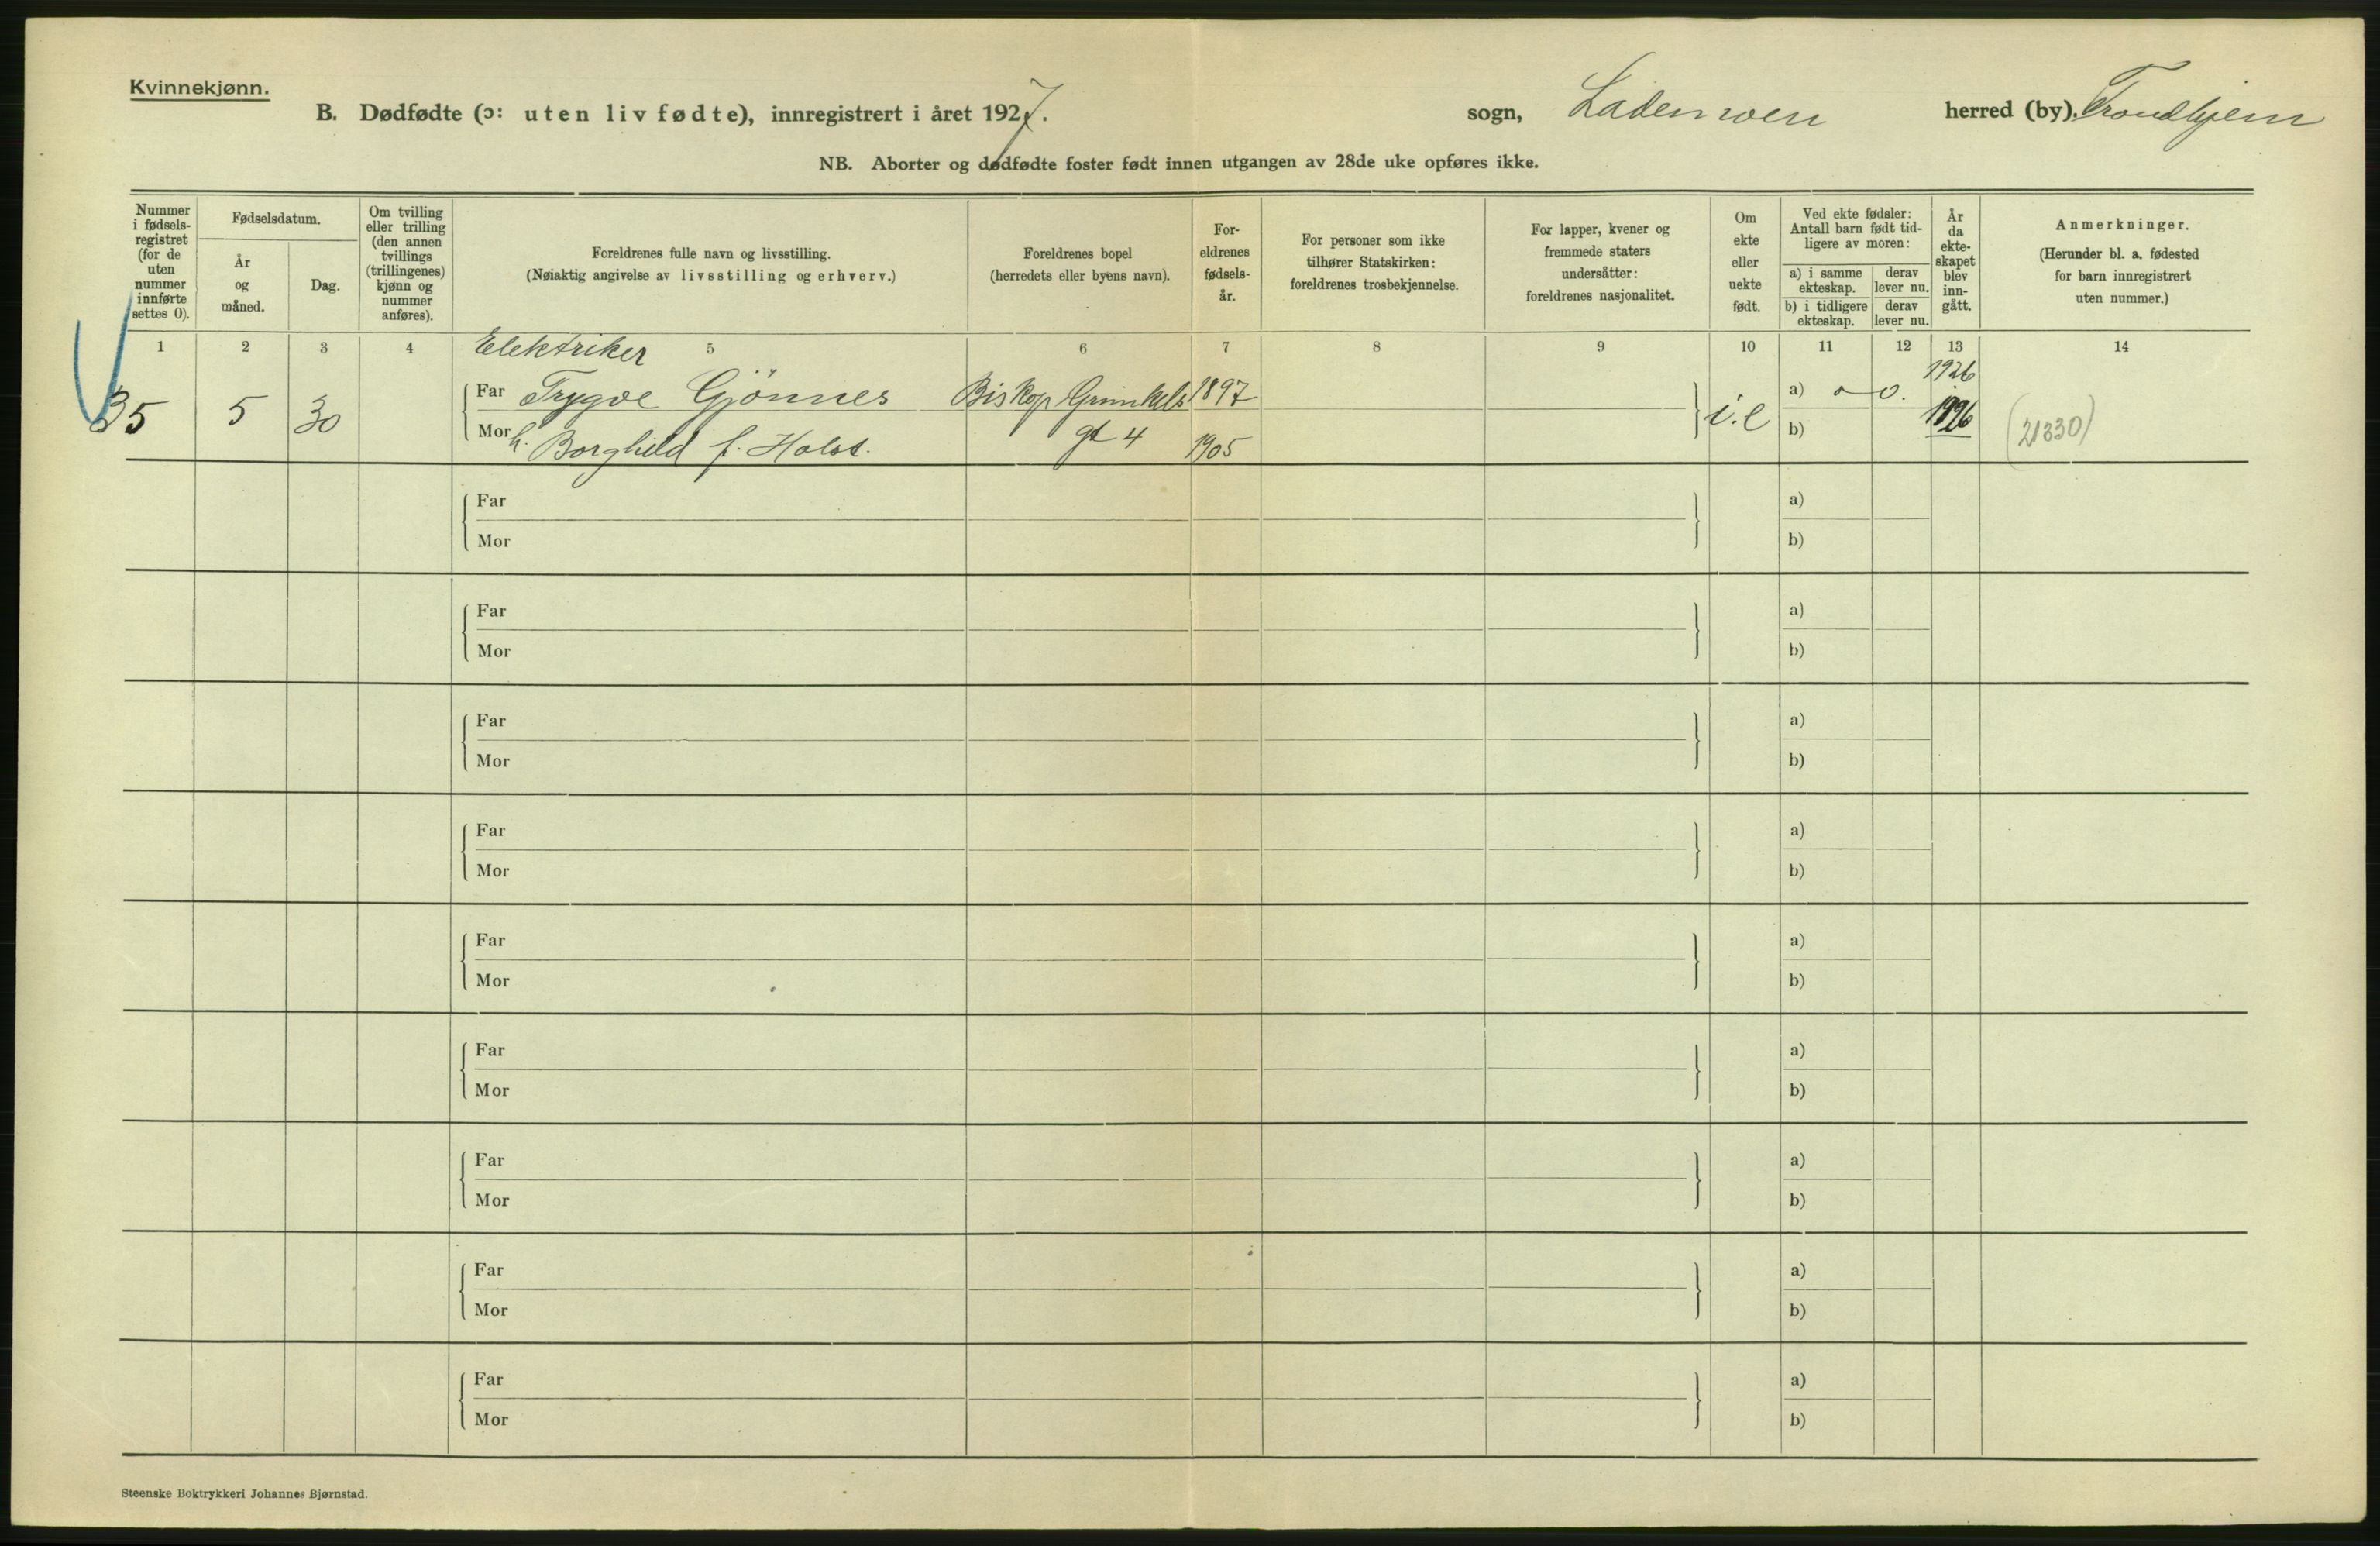 Kvinnekjønn.
B. Dødfødte (ɔ: uten liv fødte), innregistrert i året 1927. sogn, Lademoen herred (by). Trondhjem
NB. Aborter og dødfødte foster født innen utgangen av 28de uke opføres ikke.
Nummer i fødsels-registret (for de uten nummer innførte settes 0).
Fødselsdatum.
År og måned.
Dag.
Om tvilling eller trilling (den annen tvillings (trillingenes) kjønn og nummer anføres).
Foreldrenes fulle navn og livsstilling.
(Nøiaktig angivelse av livsstilling og erhverv.)
Foreldrenes bopel
(herredets eller byens navn).
For-eldrenes fødsels-år.
For personer som ikke tilhører Statskirken: foreldrenes trosbekjennelse.
For lapper, kvener og fremmede staters undersåtter: foreldrenes nasjonalitet.
Om ekte eller uekte født.
Ved ekte fødsler: Antall barn født tid-ligere av moren:
a) i samme ekteskap.
derav lever nu.
b) i tidligere ekteskap.
derav lever nu.
År da ekte-skapet blev inn-gått.
Anmerkninger.
(Herunder bl. a. fødested for barn innregistrert uten nummer.)
1 2 3 4 5 6 7 8 9 10 11 12 13 14
Elektriker 1926
35 5 30 Far Trygve Gjönnes Biskop Grimkels 1897 i.e a) o o. 1926
Mor h. Borghild f. Holst. gt 4 1905 b) (21330)
Far a)
Mor b)
Far a)
Mor b)
Far a)
Mor b)
Far a)
Mor b)
Far a)
Mor b)
Far a)
Mor b)
Far a)
Mor b)
Far a)
Mor b)
Far a)
Mor b)
Steenske Boktrykkeri Johannes Bjørnstad.